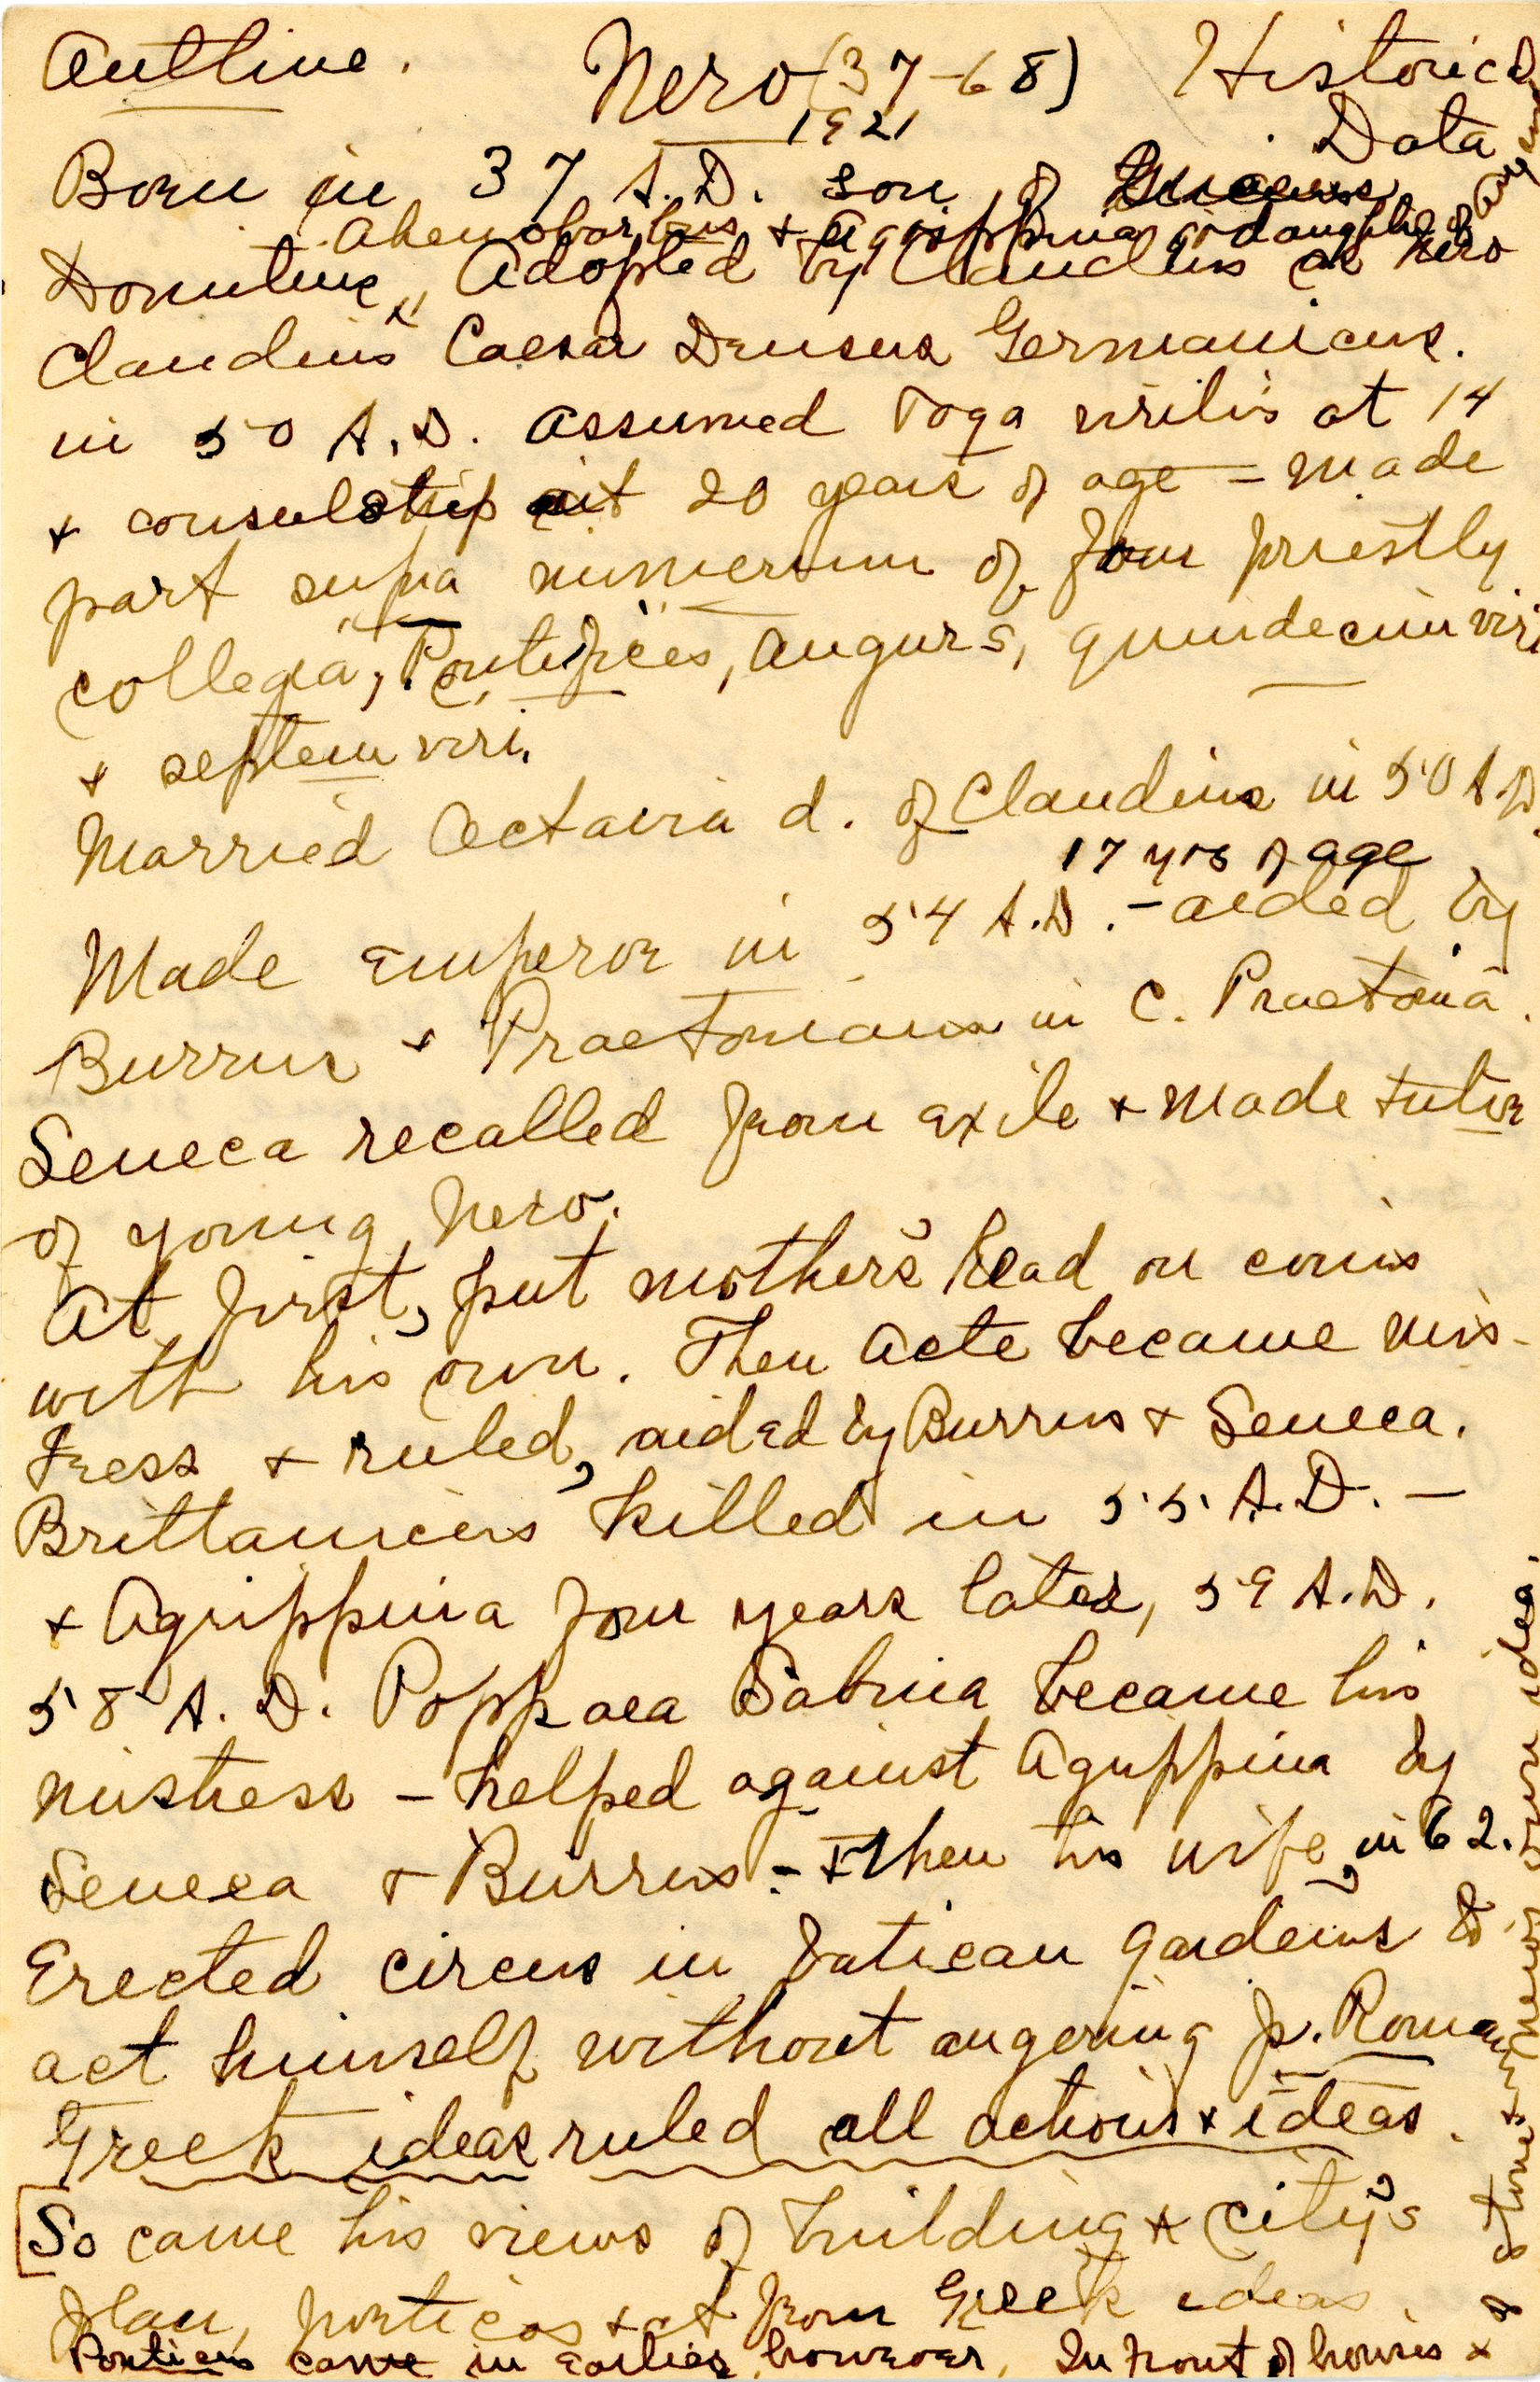 Outline. Nero (37-68) Historical
1921 Data
Born in 37 A.D. son of
Ahenobarbus & Agrippina gr daughter of Augustus
Domitius, Adopted by Claudius as Nero
Claudius Caesar Drusus Germanicus.
in 50 A.D. assumed toga virilis at 14
& consulship at 20 years of age – made
part supra numerum of four priestly
collegia, Pontifices, augurs, quindecimviri
& septemviri.
Married Octavia d. of Claudius in 50 A.D.
17 yrs of age
Made Emperor in 54 A.D. – aided by
Burrus & Praetorians in C. Praetoria.
Seneca recalled from exile & made tutor
of young Nero.
At first, put mother's head on coins
with his own. Then Acte became mis-
tress & ruled, aided by Burrus & Seneca.
Brittanicus killed in 55 A.D. –
& Agrippina four years later, 59 A.D.
58 A.D. Poppaea Sabina became his
mistress – helped against Agrippina by
Seneca & Burrus – & then his wife, in 62.
Erected circus in Vatican gardens to
act himself without angering pr. Romans
Greek ideas ruled all actions & ideas.
[So came his views of building & city's
plan, porticos & art from Greek ideas.
Porticos came in earlier, however, In front of houses &
of stone & in Nero's own idea.